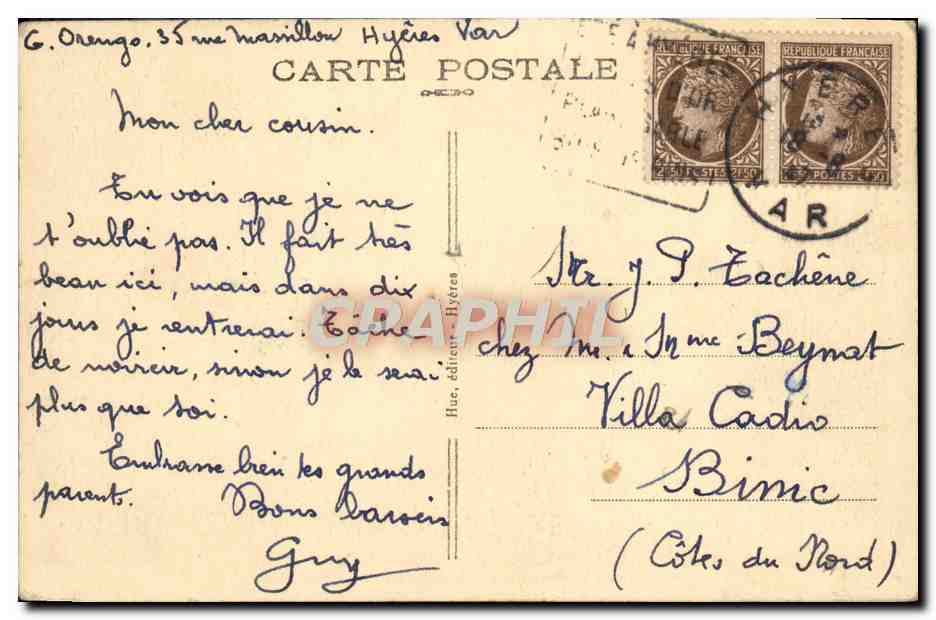 G. Orengo. 35 rue Massillon Hyères Var
CARTE POSTALE
Mon cher cousin.
Tu vois que je ne
t'oublie pas. Il fait très
beau ici, mais dans dix
jours je rentrerai. Tâche
de noircir, sinon je le serai
plus que toi.
Embrasse bien tes grands
parents. Bons baisers
Guy
Hue, éditeur - Hyères
RÉPUBLIQUE FRANÇAISE
2F50 POSTES 2F50
RÉPUBLIQUE FRANÇAISE
POSTES
HYÈRES
18 8
VAR
Mr J. P. Tachêne
chez M. & Mme Beynat
Villa Cadio
Binic
(Côtes du Nord)
CRAPHIL